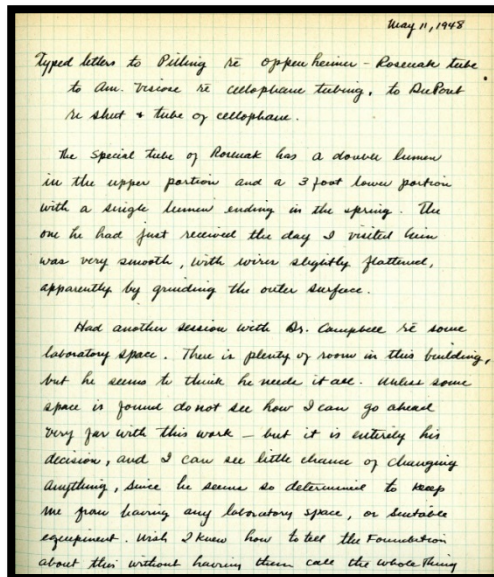 May 11, 1948
Typed letters to Pilling re Oppenheimer - Rosenak tube
to Am. Viscose re cellophane tubing, to DuPont
re sheet & tube of cellophane.
The special tube of Rosenak has a double lumen
in the upper portion and a 3 foot lower portion
with a single lumen ending in the spring. The
one he had just received the day I visited him
was very smooth, with wires slightly flattened,
apparently by grinding the outer surface.
Had another session with Dr. Campbell re some
laboratory space. There is plenty of room in this building,
but he seems to think he needs it all. Unless some
space is found do not see how I can go ahead
very far with this work - but it is entirely his
decision, and I can see little chance of changing
anything, since he seems so determined to keep
me from having any laboratory space, or suitable
equipment. Wish I knew how to tell the Foundation
about this without having them call the whole thing